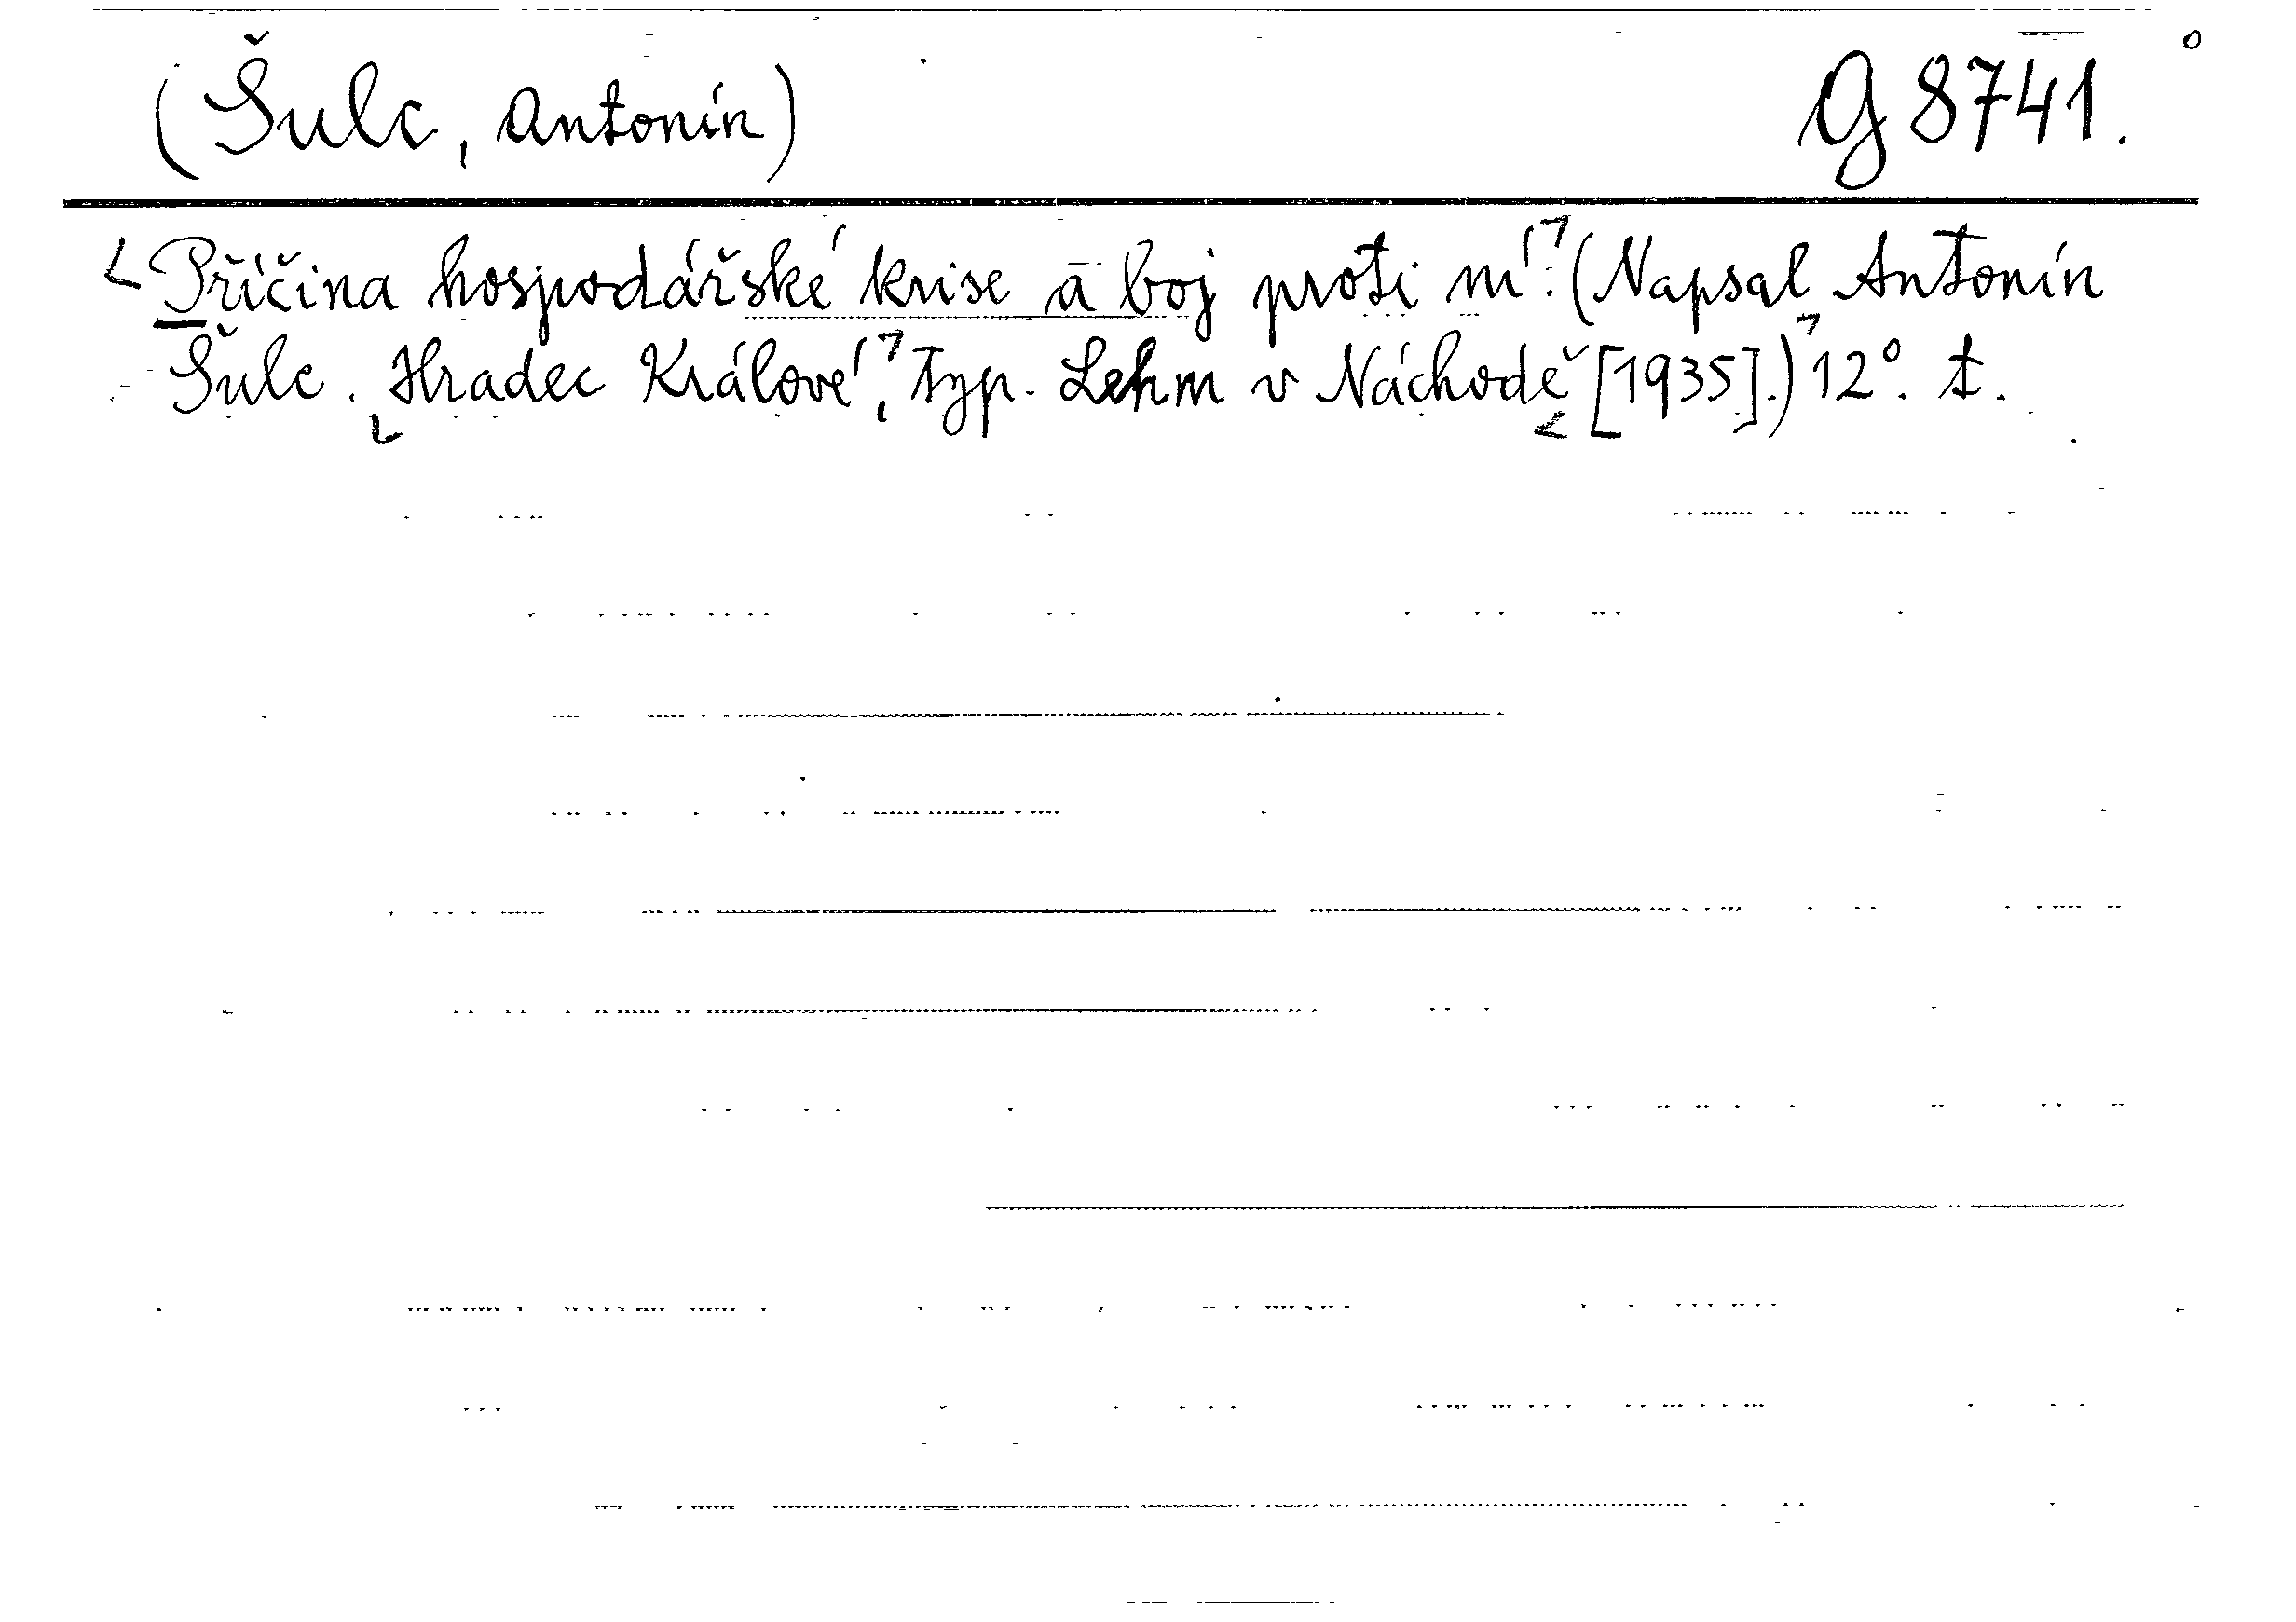 (Šulc, Antonín) G 8741.
Příčina hospodářské krise a boj proti ní. (Napsal Antonín
Šulc. Hradec Králové, Typ. Lehm v Náchodě [1935].) 12°. t.